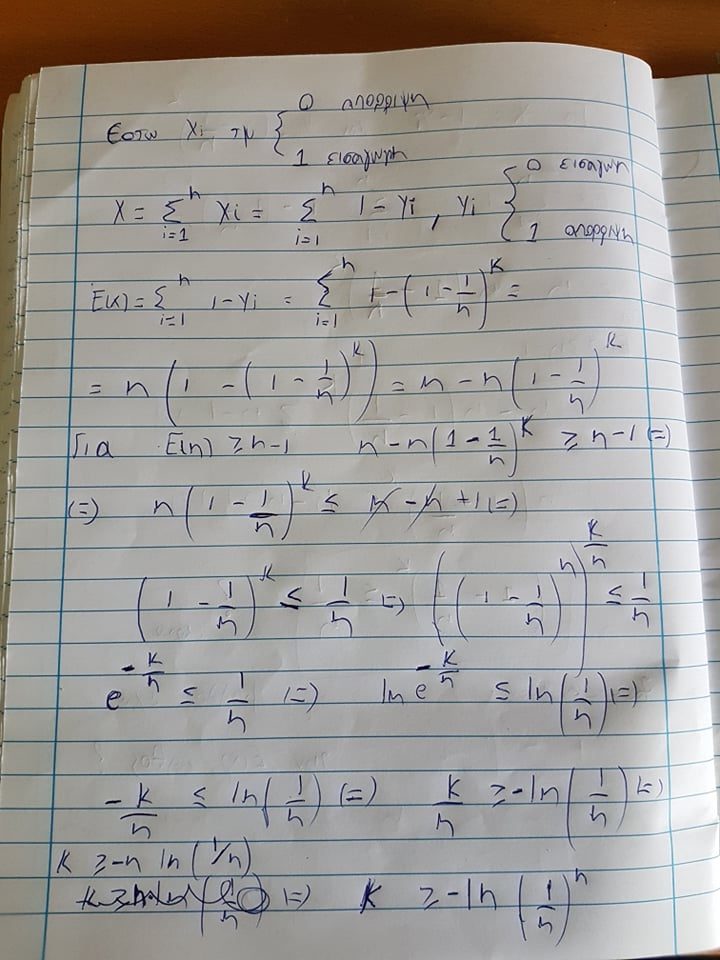 0 απορριψη
Εστω Xi τμ {
1 εισαγωγη
X = Σ_{i=1}^{n} Xi = Σ_{i=1}^{n} 1 - Yi , Yi { 0 εισαγωγη
1 απορριψη
E(x) = Σ_{i=1}^{n} 1 - Yi = Σ_{i=1}^{n} 1 - (1 - 1/n)^K =
= n (1 - (1 - 1/n)^K) = n - n (1 - 1/n)^K
Για E(n) ≥ n-1 n - n (1 - 1/n)^K ≥ n-1 (=)
(=) n (1 - 1/n)^K ≤ n - n + 1 (=)
(1 - 1/n)^K ≤ 1/n (=) ((1 - 1/n)^n)^{K/n} ≤ 1/n
e^{-K/n} ≤ 1/n (=) ln e^{-K/n} ≤ ln (1/n) (=)
-K/n ≤ ln (1/n) (=) K/n ≥ -ln (1/n) (=)
K ≥ -n ln (1/n)
(=) K ≥ -ln (1/n)^n